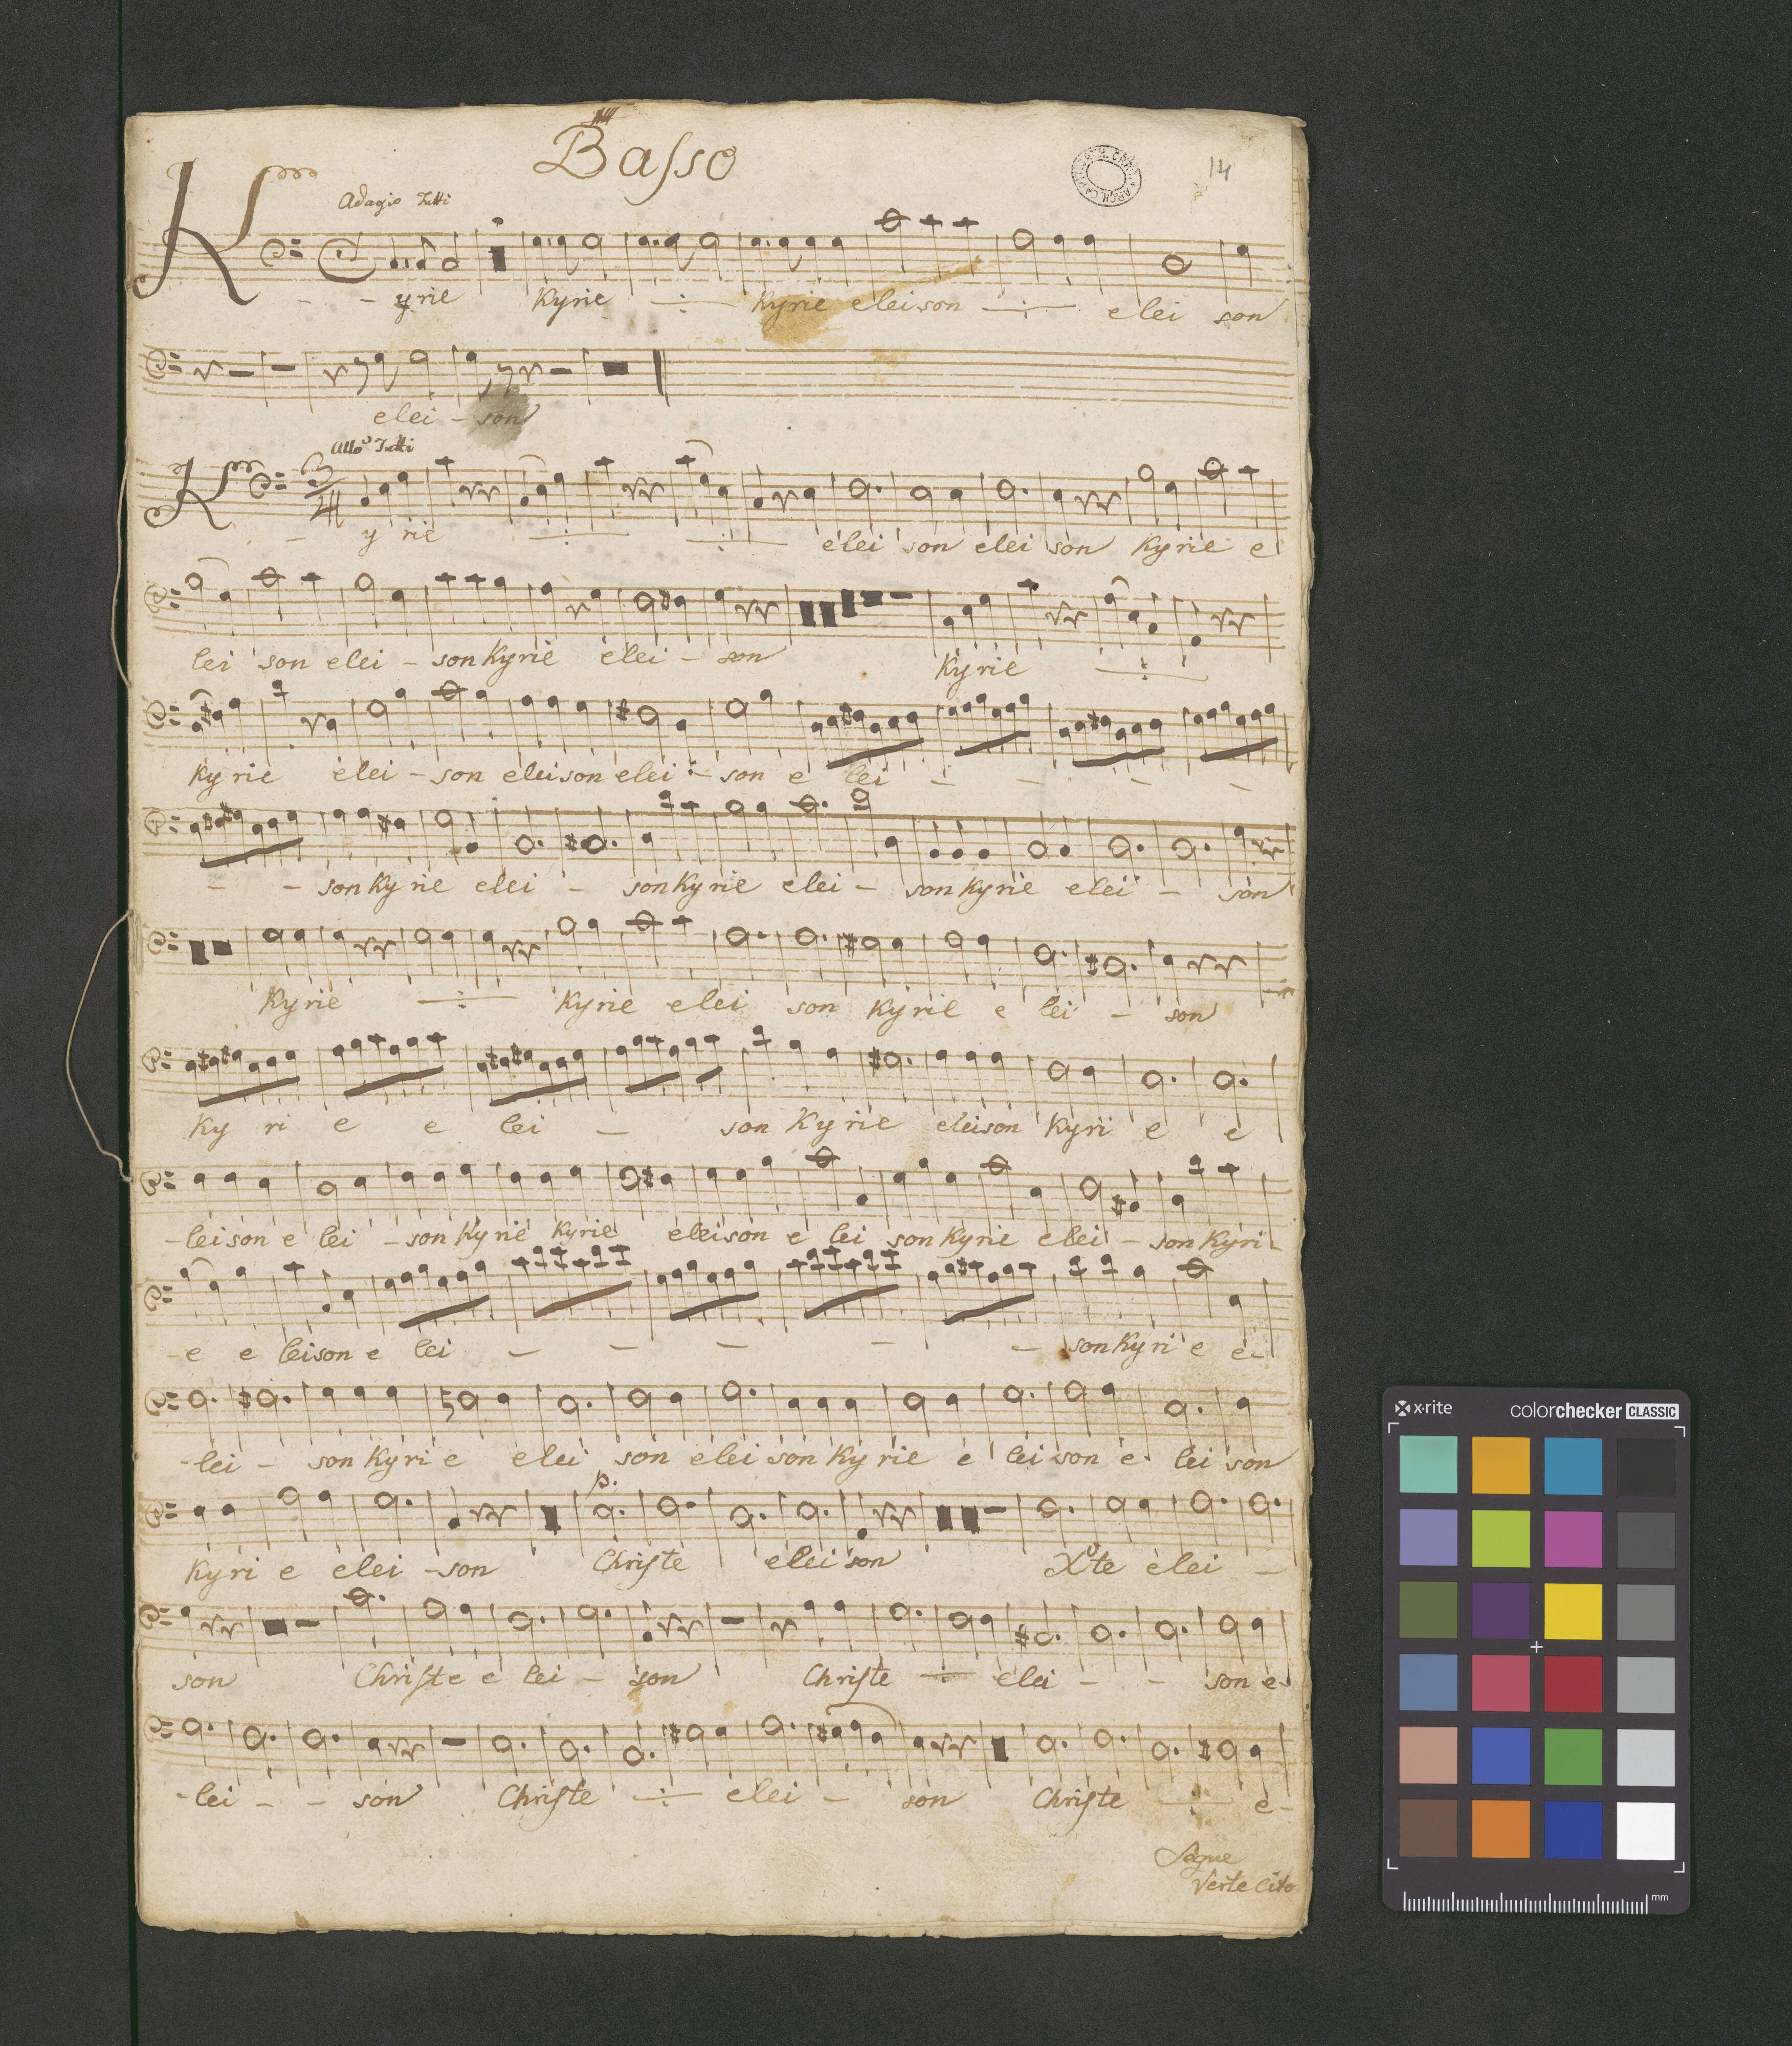 Basso
14
Adagio Tutti
K - - yrie Kyrie Kyrie eleison elei son
elei - son
Allo Tutti
K - y rie elei son elei son Kyrie e
lei son elei - son Kyrie elei - son Kyrie
Kyrie elei - son eleison elei - son e lei - - - -
- - son Kyrie elei - son Kyrie elei - son Kyrie elei - son
Kyrie Kyrie elei son Kyrie e lei - son
Ky ri e e lei - son Kyrie eleison Kyri e e
-leison e lei - son Kyrie Kyrie eleison e lei son Kyrie elei - son Kyri
- e e leison e lei - - - - - son Kyri e e-
-lei - son Kyri e elei son elei son Kyrie e lei son e lei son
p.
Kyri e elei - son Christe eleison Xte elei -
son Christe e lei - son Christe elei - - son e
-lei - - son Christe elei - son Christe e-
Segue
Verte Cito
x-rite
colorchecker CLASSIC
mm